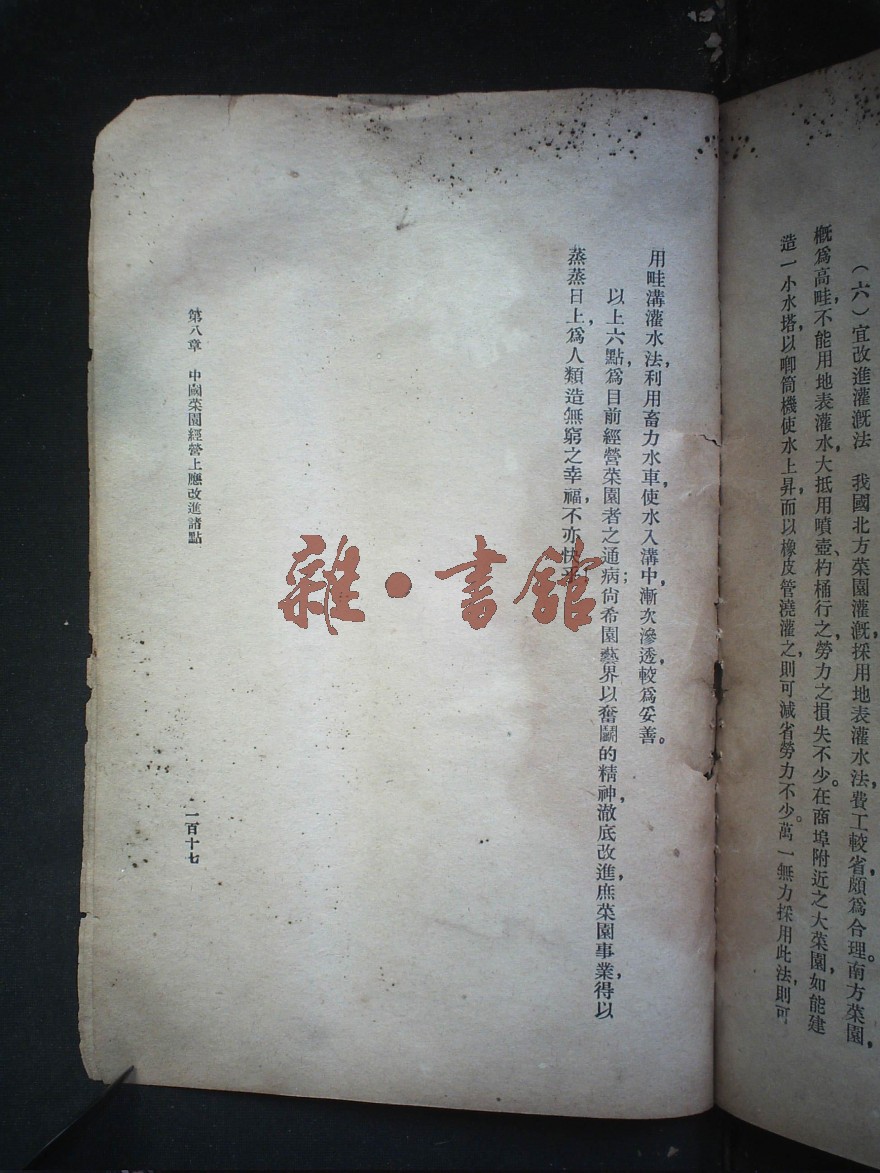 （六）宜改進灌漑法　我國北方菜園灌漑，採用地表灌水法，費工較省，頗爲合理。南方菜園，
概爲高畦，不能用地表灌水，大抵用噴壺、杓桶行之，勞力之損失不少。在商埠附近之大菜園，如能建
造一小水塔，以喞筒機使水上昇，而以橡皮管澆灌之，則可減省勞力不少。萬一無力採用此法，則可
用畦溝灌水法，利用畜力水車，使水入溝中，漸次滲透，較爲妥善。
以上六點，爲目前經營菜園者之通病；尙希園藝界以奮鬭的精神，澈底改進，庶菜園事業，得以
蒸蒸日上，爲人類造無窮之幸福，不亦快乎。
第八章　中國菜園經營上應改進諸點
一百十七
雜·書館